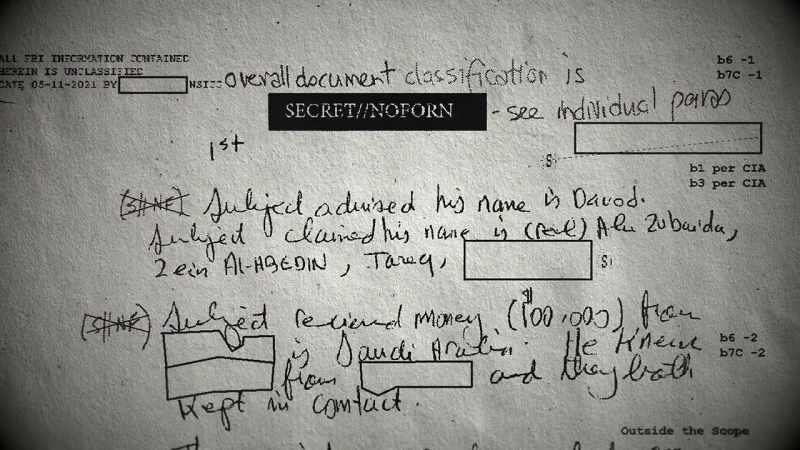 ALL FBI INFORMATION CONTAINED
HEREIN IS UNCLASSIFIED
DATE 05-11-2021 BY NSICG
overall document classification is
b6 -1
b7C -1
SECRET//NOFORN - see individual paras
1st
S
b1 per CIA
b3 per CIA
(S//NF) Subject advised his name is Davod.
Subject claimed his name is (real) Abu Zubaida,
Zein Al-ABEDIN, Tareq, S
(S//NF) Subject received money ($100,000) from
is Saudi Arabia. He knew
b6 -2
b7C -2
from and they both
Kept in contact.
Outside the Scope